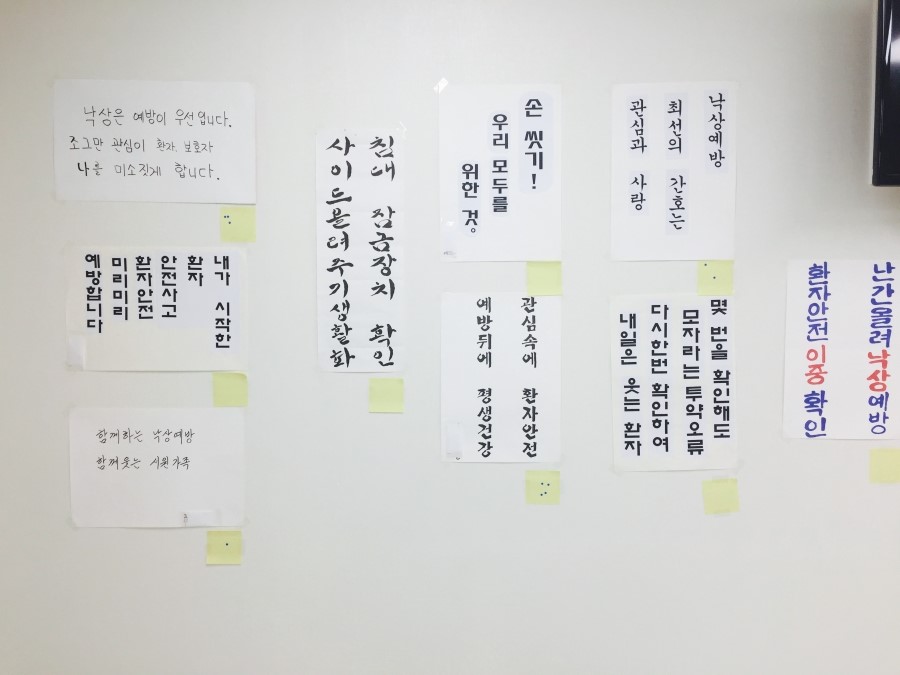 낙상은 예방이 우선입니다.
조그만 관심이 환자, 보호자
나를 미소짓게 합니다.
내가 시작한
환자
안전사고
환자안전
미리미리
예방합니다
함께하는 낙상예방
함께웃는 시원가족
침대 잠금장치 확인
사이드올려주기생활화
손 씻기!
우리 모두를
위한 것
관심속에 환자안전
예방뒤에 평생건강
낙상예방
최선의 간호는
관심과 사랑
몇 번을 확인해도
모자라는 투약오류
다시한번 확인하여
내일은 웃는 환자
난간올려 낙상예방
환자안전 이중 확인